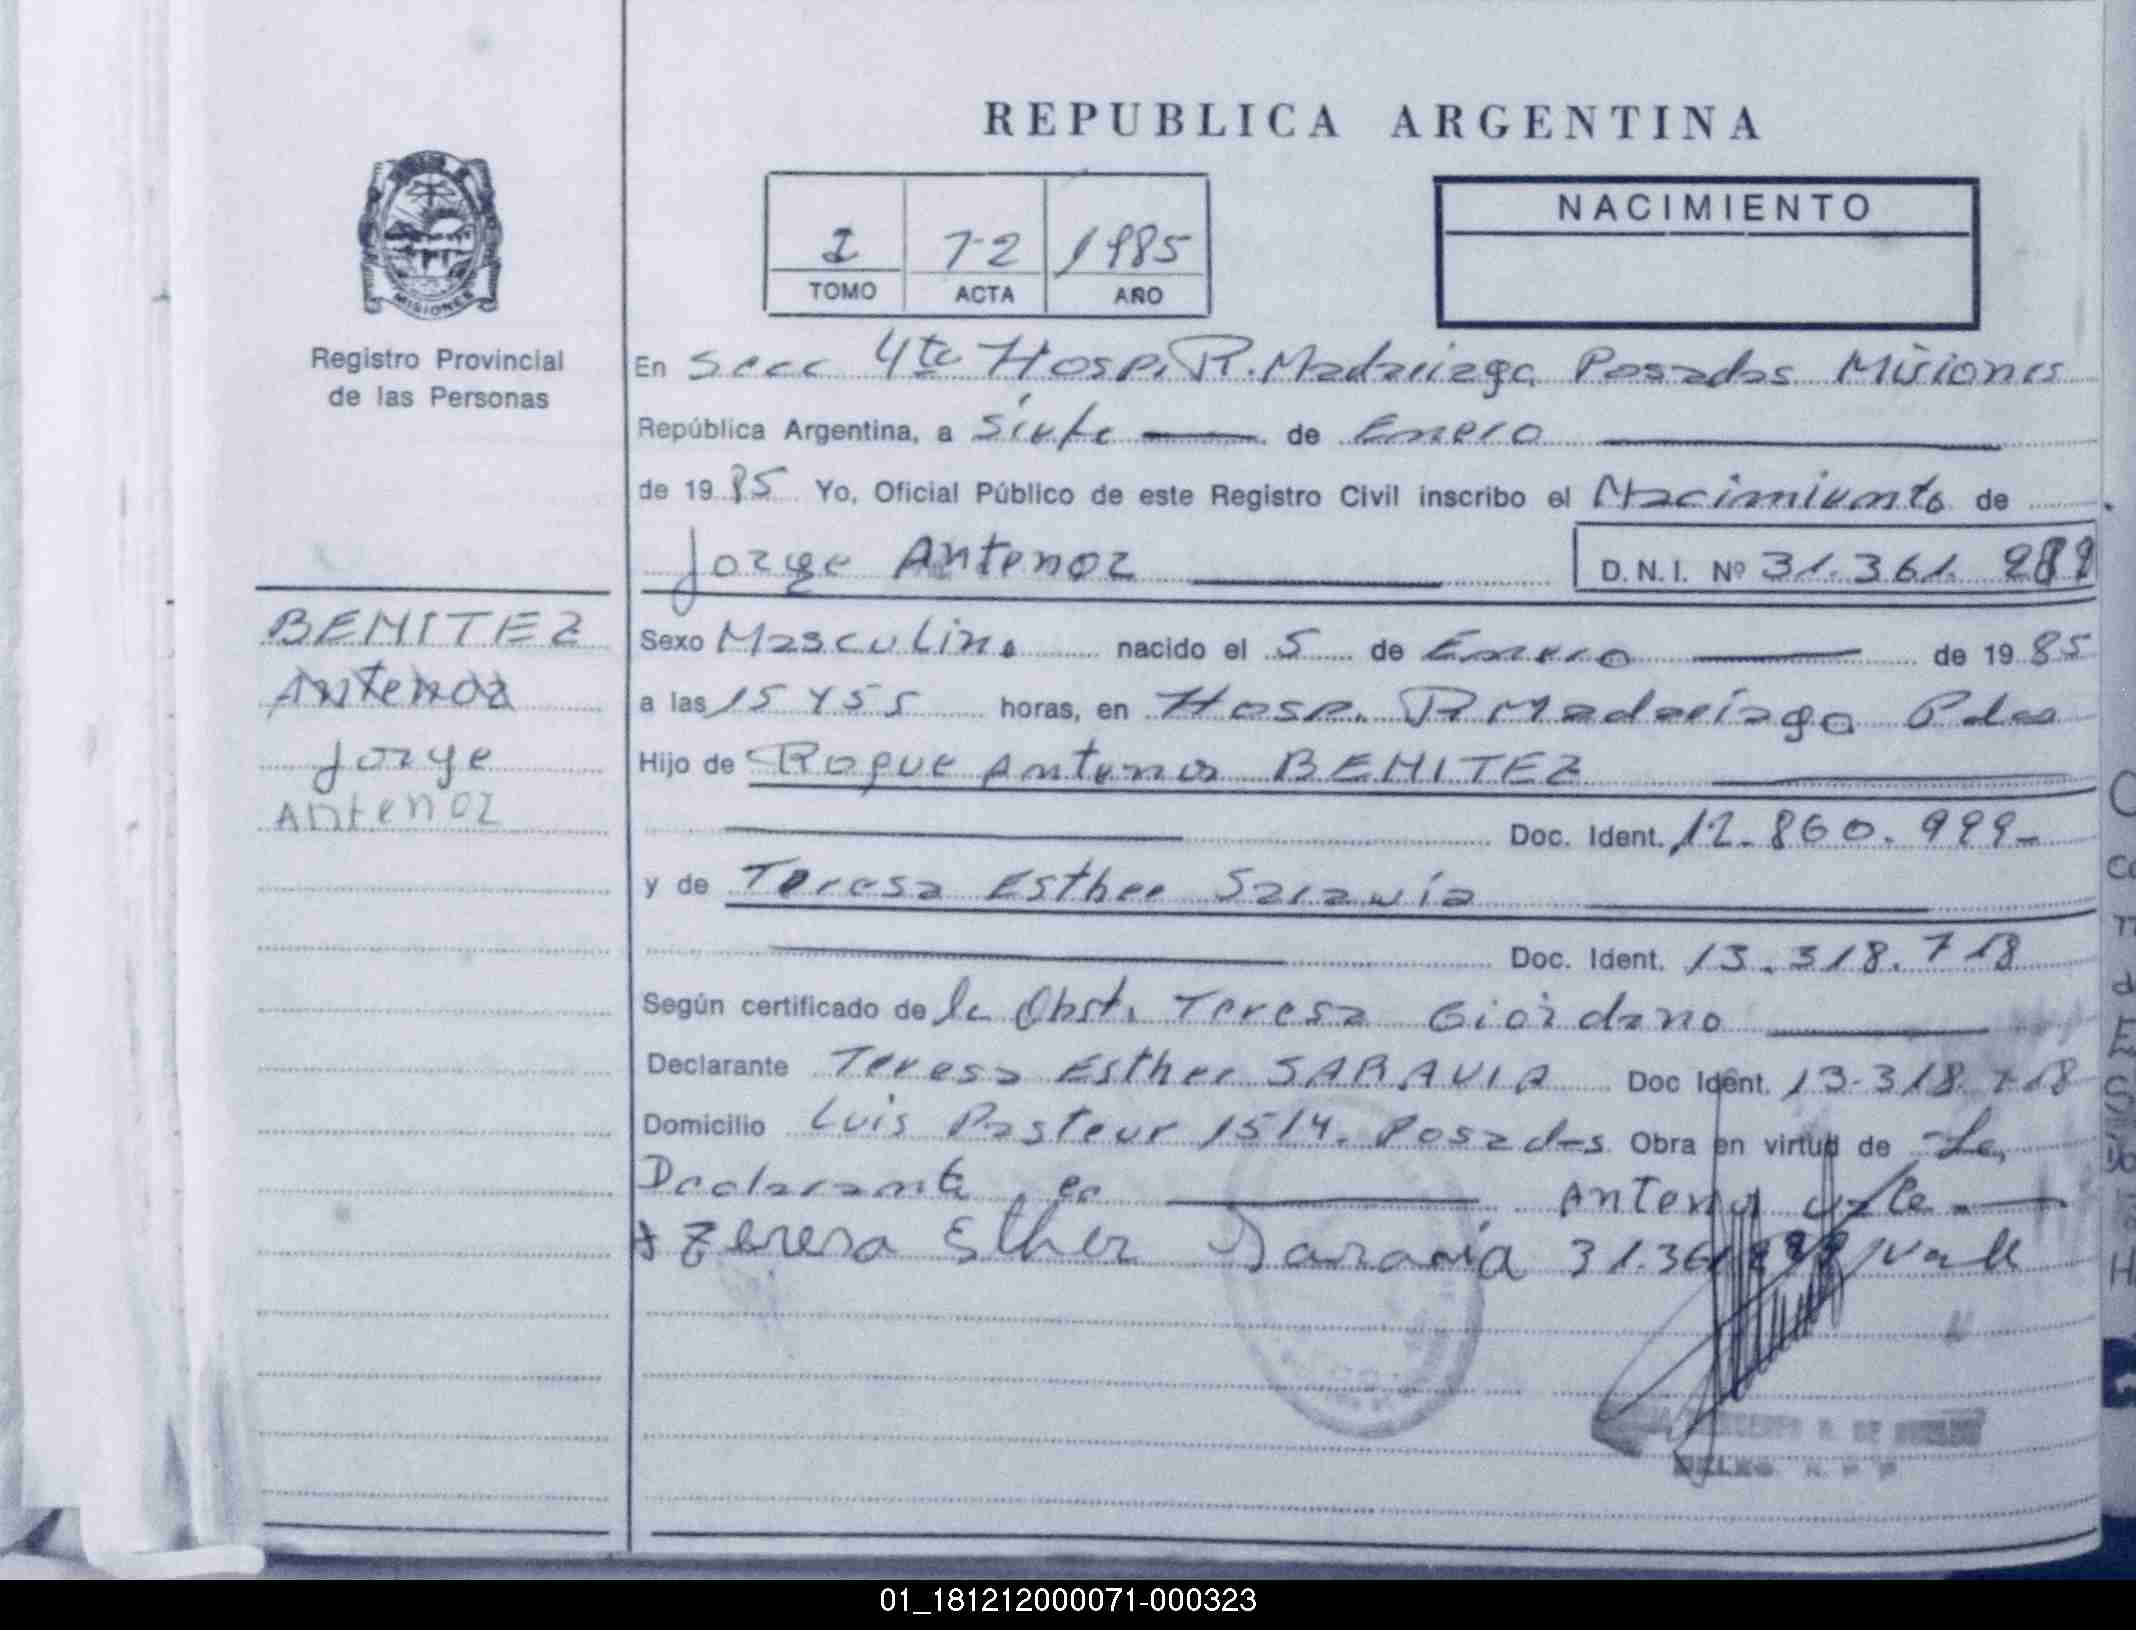 REPUBLICA ARGENTINA
MISIONES
Registro Provincial
de las Personas
I 72 1985
TOMO ACTA AÑO
NACIMIENTO
En Secc 4ta Hosp. R. Madariaga Posadas Misiones
República Argentina, a siete de Enero
de 1985 Yo, Oficial Público de este Registro Civil inscribo el Nacimiento de
Jorge Antenor D.N.I. Nº 31.361.
BENITEZ
Antenor
Jorge
Antenor
Sexo Masculino nacido el 5 de Enero de 1985
a las 15 y 55 horas, en Hosp. R Madariaga Pdas
Hijo de Roque Antenor BENITEZ
Doc. Ident. 12.860.999-
y de Teresa Esther Saravia
Doc. Ident. 13.318.718
Según certificado de la Obst. Teresa Giordano
Declarante Teresa Esther SARAVIA Doc Ident. 13.318.718
Domicilio Luis Pasteur 1514. Posadas Obra en virtud de La
Declarante Antenor
Teresa Esther Saravia 31.361 Vale
01_181212000071-000323